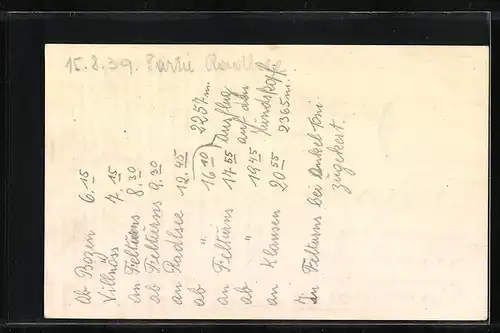 15.8.39. Partie Radlsee
ab Bozen 6.15
" Villnöss 7.15
an Felturns 8.30
ab Felturns 9.30
an Radlsee 12.45 2257 m.
ab " 16.10 Ausflug
an Felturns 17.55 auf den
ab " 19.45 Hundskopf.
an Klausen 20.55 2365 m.
In Felturns bei Onkel Toni
zugekert.